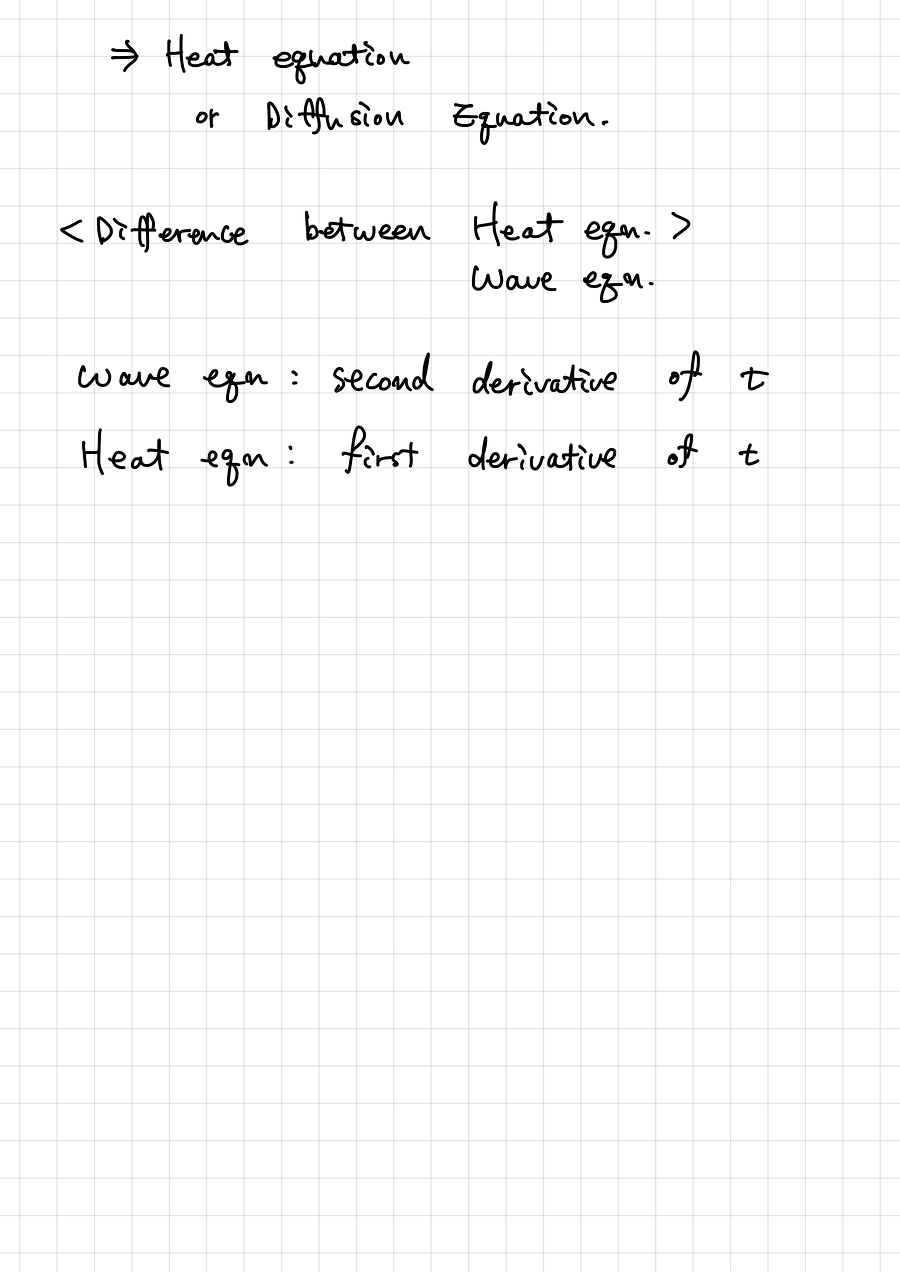 ⇒ Heat equation
or Diffusion Equation.
< Difference between Heat eqn. >
Wave eqn.
Wave eqn : second derivative of t
Heat eqn : first derivative of t